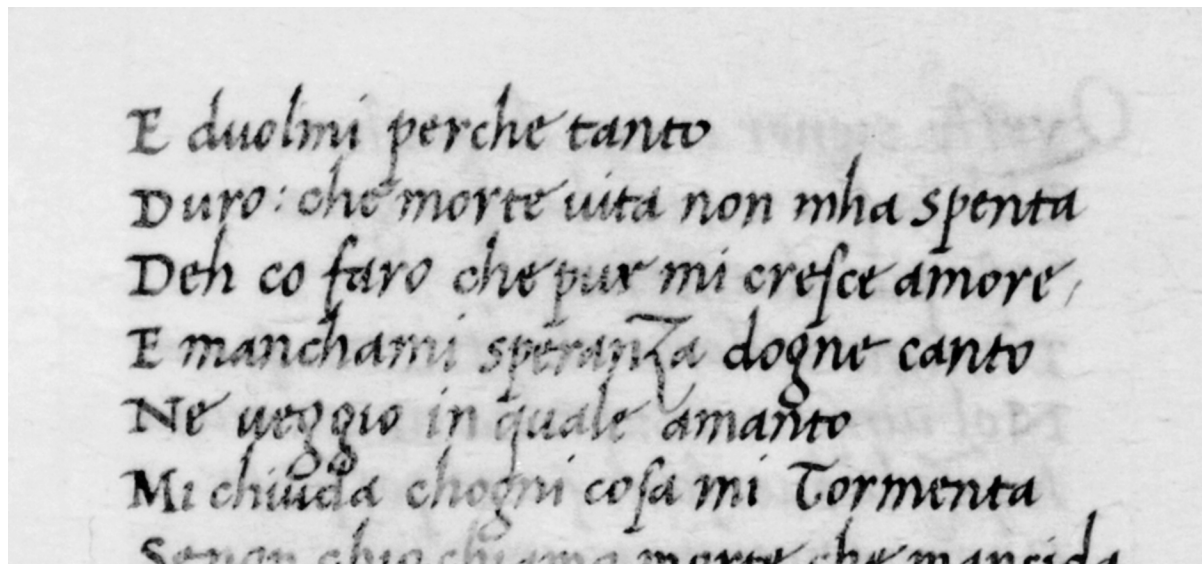 E duolmi perche tanto
Duro: che morte vita non mha spenta
Deh co faro che pur mi cresce amore,
E manchami speranza dogne canto
Ne veggio in quale amanto
Mi chiuda chogni cosa mi Tormenta
Senon chio chiama morte che mancida